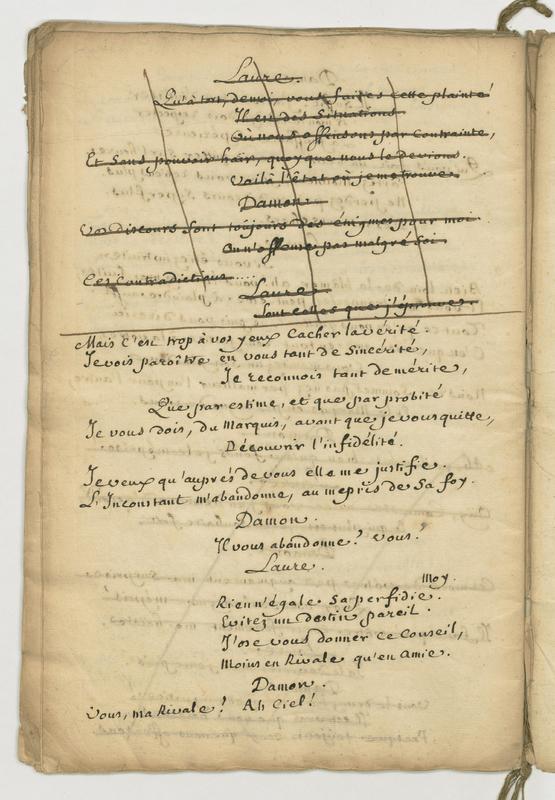 Laure.
Qu'à tort, de moi, vous faites cette plainte
Il est des Situations
Où nous offensons par contrainte,
Et sans pouvoir haïr, quoy que nous le devions.
Voilà l'état où je me trouve.
Damon
Vos discours sont toujours des énigmes pour moi
On n'offense pas malgré soi.
Ces contradictions.....
Laure
Sont celles que j'éprouve.
Mais c'est trop à vos yeux cacher la vérité.
Je vois paroître en vous tant de Sincérité,
Je reconnois tant de mérite,
Que par estime, et que par probité
Je vous dois, du Marquis, avant que je vous quitte,
Découvrir l'infidélité.
Je veux qu'auprés de vous elle me justifie.
L'Inconstant m'abandonne, au mepris de Sa foy.
Damon.
Il vous abandonne? vous?
Laure.
Moy.
Rien n'égale Sa perfidie.
Evitez un destin pareil.
J'ose vous donner ce Conseil,
Moins en Rivale qu'en Amie.
Damon.
Vous, ma Rivale! Ah Ciel!